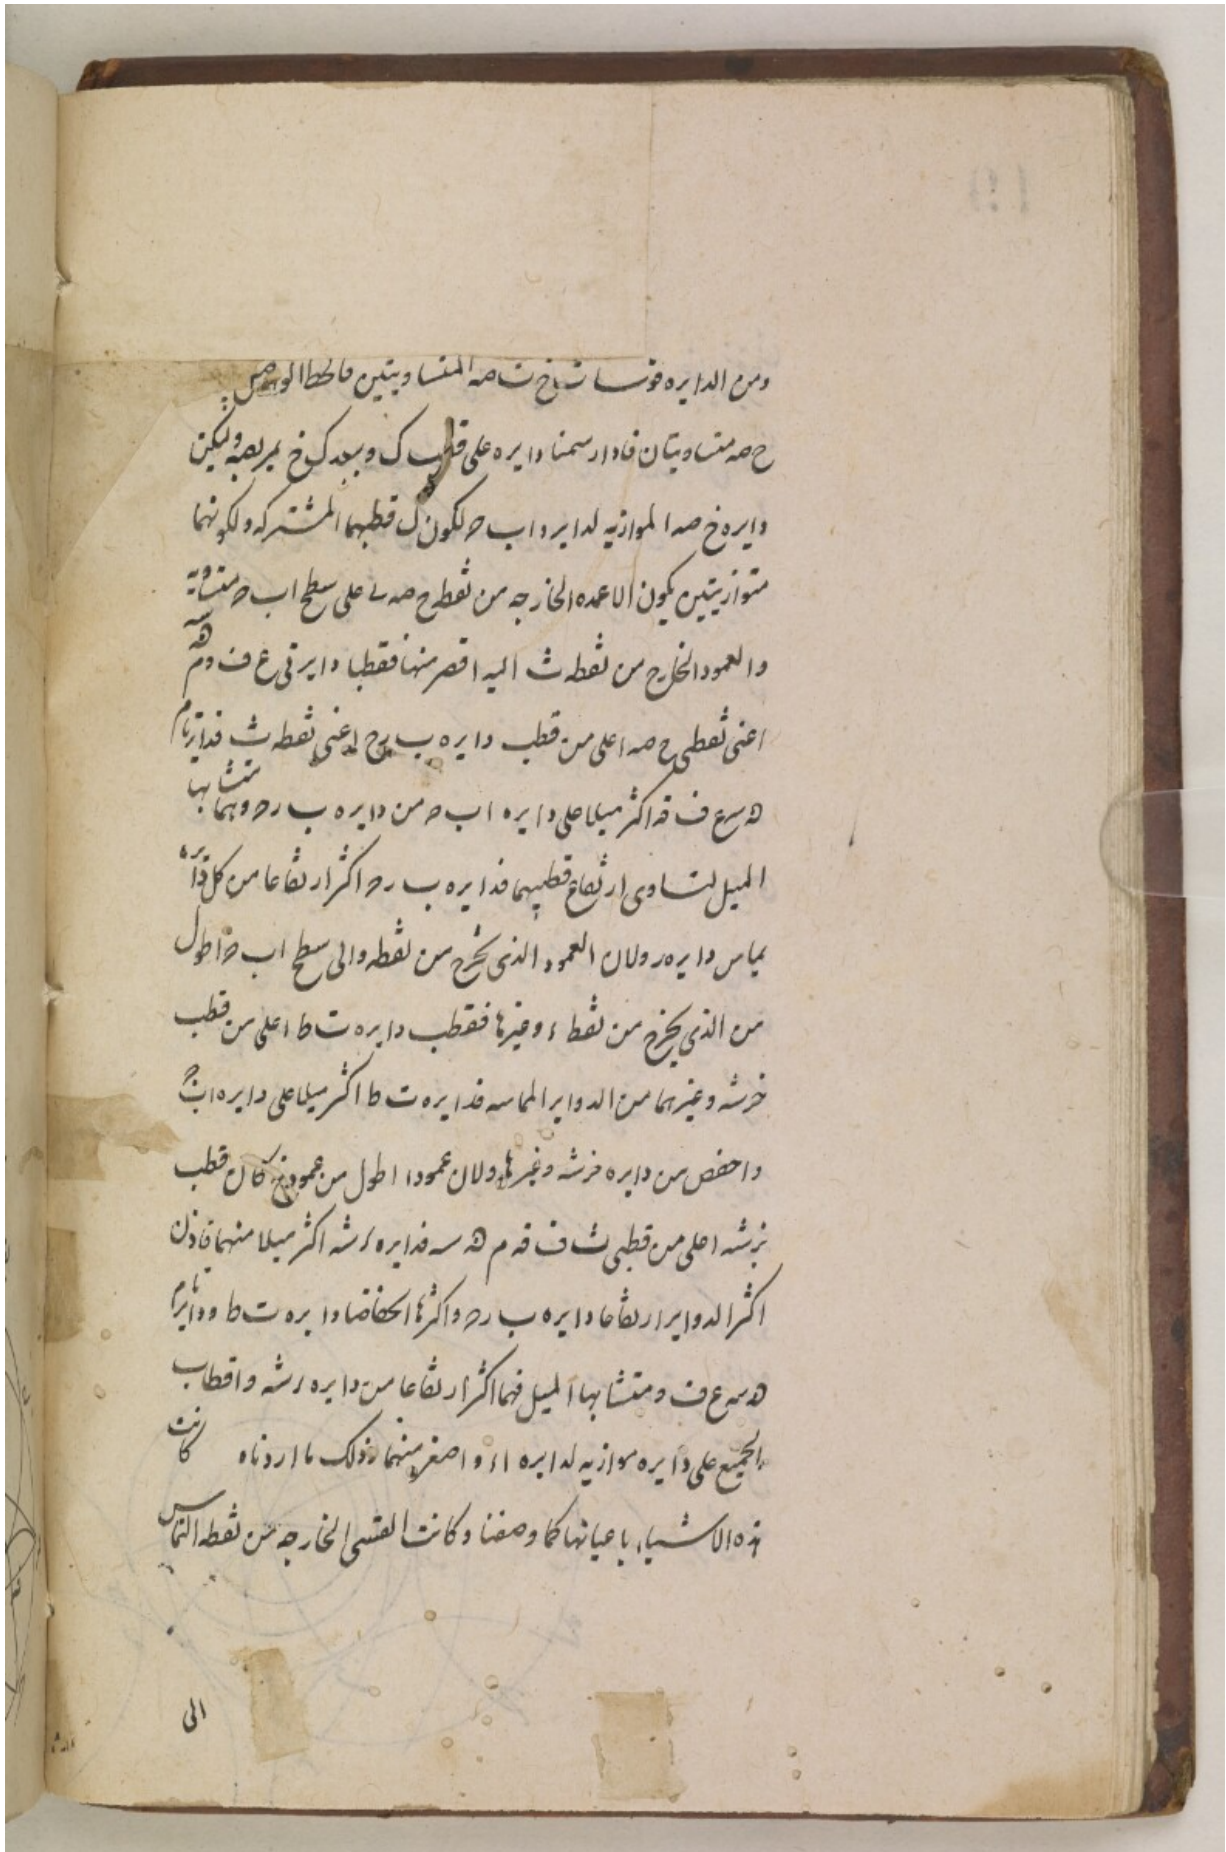 ومن الدايره قوسا ث خ ث صه المتساويتين فالخطا الو
خ صه متساويتان فاذا رسمنا دايره على قطب ك وببعد ك خ يمر بصه وليكن
دايره خ صه الموازيه لدايره ا ب ح لكون ك قطبهما المشتركه ولكونهما
متوازيتين يكون الاعمده الخارجه من نقط خ صه على سطح ا ب ح متساويه
والعمود الخارج من نقطه ث اليه اقصر منها فقطبا دايرتى ع ف و م هـ سه
اعنى نقطى خ صه اعلى من قطب دايره ب ر ح اعنى نقطه ث فدايرتا م
هـ سه ع ف قه اكثر ميلا على دايره ا ب ح من دايره ب ر ح وهما متشابها
الميل لتساوى ارتفاع قطبيهما فدايره ب ر ح اكثر ارتفاعا من كل دايره
يماس دايره ر ولان العمود الذى يخرج من نقطه والى سطح ا ب ح اطول
من الذى يخرج من نقط ء وغيرها فقطب دايره ت ط اعلى من قطب
خ ر شه وغيرهما من الدواير المماسه فدايره ت ط اكثر ميلا على دايره ا ب ح
واخفض من دايره خ ر شه وغيرها ولان عمود ا اطول من عمود خ كان قطب
ر شه اعلى من قطبى ث ف قه م هـ سه فدايره ر شه اكثر ميلا منهما فاذن
اكثر الدواير ارتفاعا دايره ب ر ح واكثرها انخفاضا دايره ت ط ودايرتا م
هـ سه ع ف ومتشابها الميل فهما اكثر ارتفاعا من دايره ر شه واقطاب
الجميع على دايره موازيه لدايره ا ء واصغر منها وذلك ما اردناه كانت
هذه الاشياء باعيانها كما وصفنا وكانت القسى الخارجه من نقطه التماس
الى